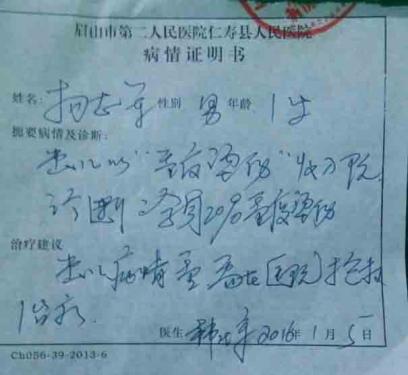 眉山市第二人民医院仁寿县人民医院
病情证明书
姓名: 杨志军 性别 男 年龄 1岁
摘要病情及诊断:
患儿以“重度烫伤”收入院
诊断: 全身20%重度烫伤
治疗建议
患儿病情重 医院抢救
治疗.
医生 2016年1月5日
Ch056-39-2013-6